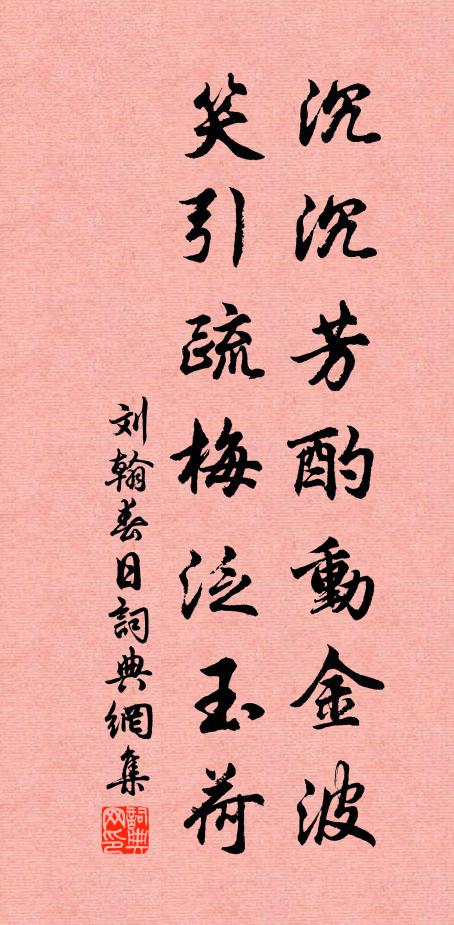 沉沉芳酌動金波
笑引疏梅泛玉荷
刘翰春日詞典網集
詞典网印